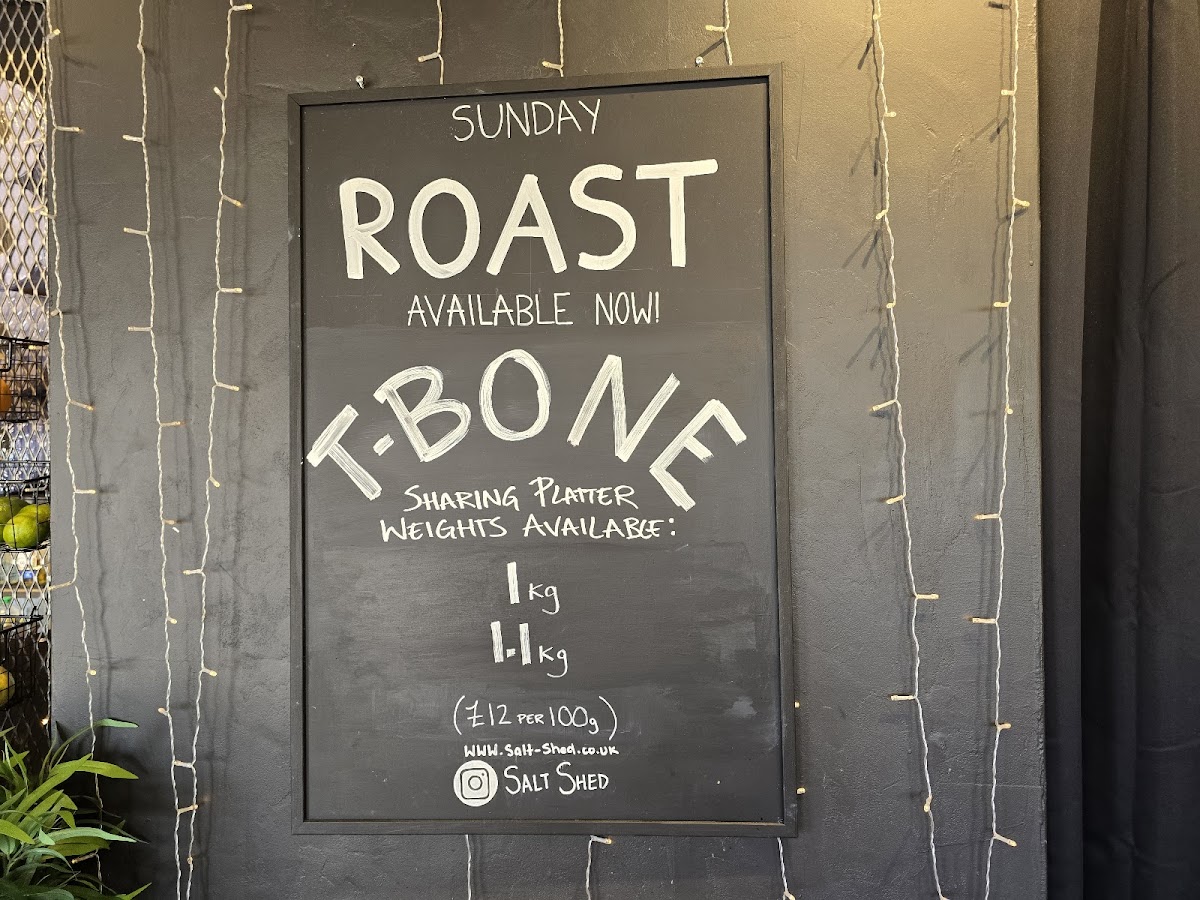 SUNDAY
ROAST
AVAILABLE NOW!
T-BONE
SHARING PLATTER
WEIGHTS AVAILABLE:
1 kg
1.1 kg
(£12 PER 100g)
WWW.Salt-Shed.co.uk
SALT SHED